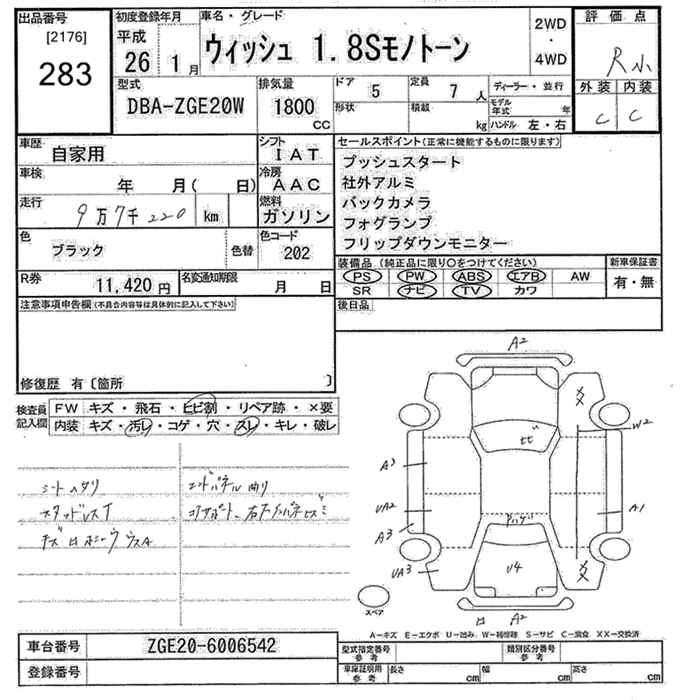 出品番号
[2176]
283
初度登録年月
平成
26 1月
車名・グレード
ウィッシュ 1.8Sモノトーン
2WD
・
4WD
評価点
R小
外装 内装
C C
型式
DBA-ZGE20W
排気量
1800
CC
ドア 5
定員 7人
形状
積載 kg
ディーラー・並行
モデル年式 年
ハンドル 左・右
車歴
自家用
シフト
IAT
車検
年 月( 日)
冷房
AAC
走行
9万7千220 km
燃料
ガソリン
色
ブラック
色替
色コード
202
R券
11,420円
名変通知期限
月 日
セールスポイント(正常に機能するものに限ります)
プッシュスタート
社外アルミ
バックカメラ
フォグランプ
フリップダウンモニター
装備品 (純正品に限り○をつけてください)
新車保証書
PS PW ABS エアB AW
SR ナビ TV カワ
有・無
後日品
注意事項申告欄(不具合内容等は具体的に記入して下さい)
修復歴 有〔箇所 〕
検査員記入欄
FW キズ・飛石・ヒビ割・リペア跡・×要
内装 キズ・汚レ・コゲ・穴・スレ・キレ・破レ
シートヘタリ
エンドパネル曲り
スタッドレスT
A2
XX
W2
ヒビ
A3
UA2
A1
A3
UA3
U4
XX
A2
スペア
A-キズ E-エクボ U-凹み W-補修跡 S-サビ C-腐食 XX-交換済
車台番号
ZGE20-6006542
登録番号
型式指定番号
参考
類別区分番号
参考
車庫証明用
参考
長さ cm
幅 cm
高さ cm